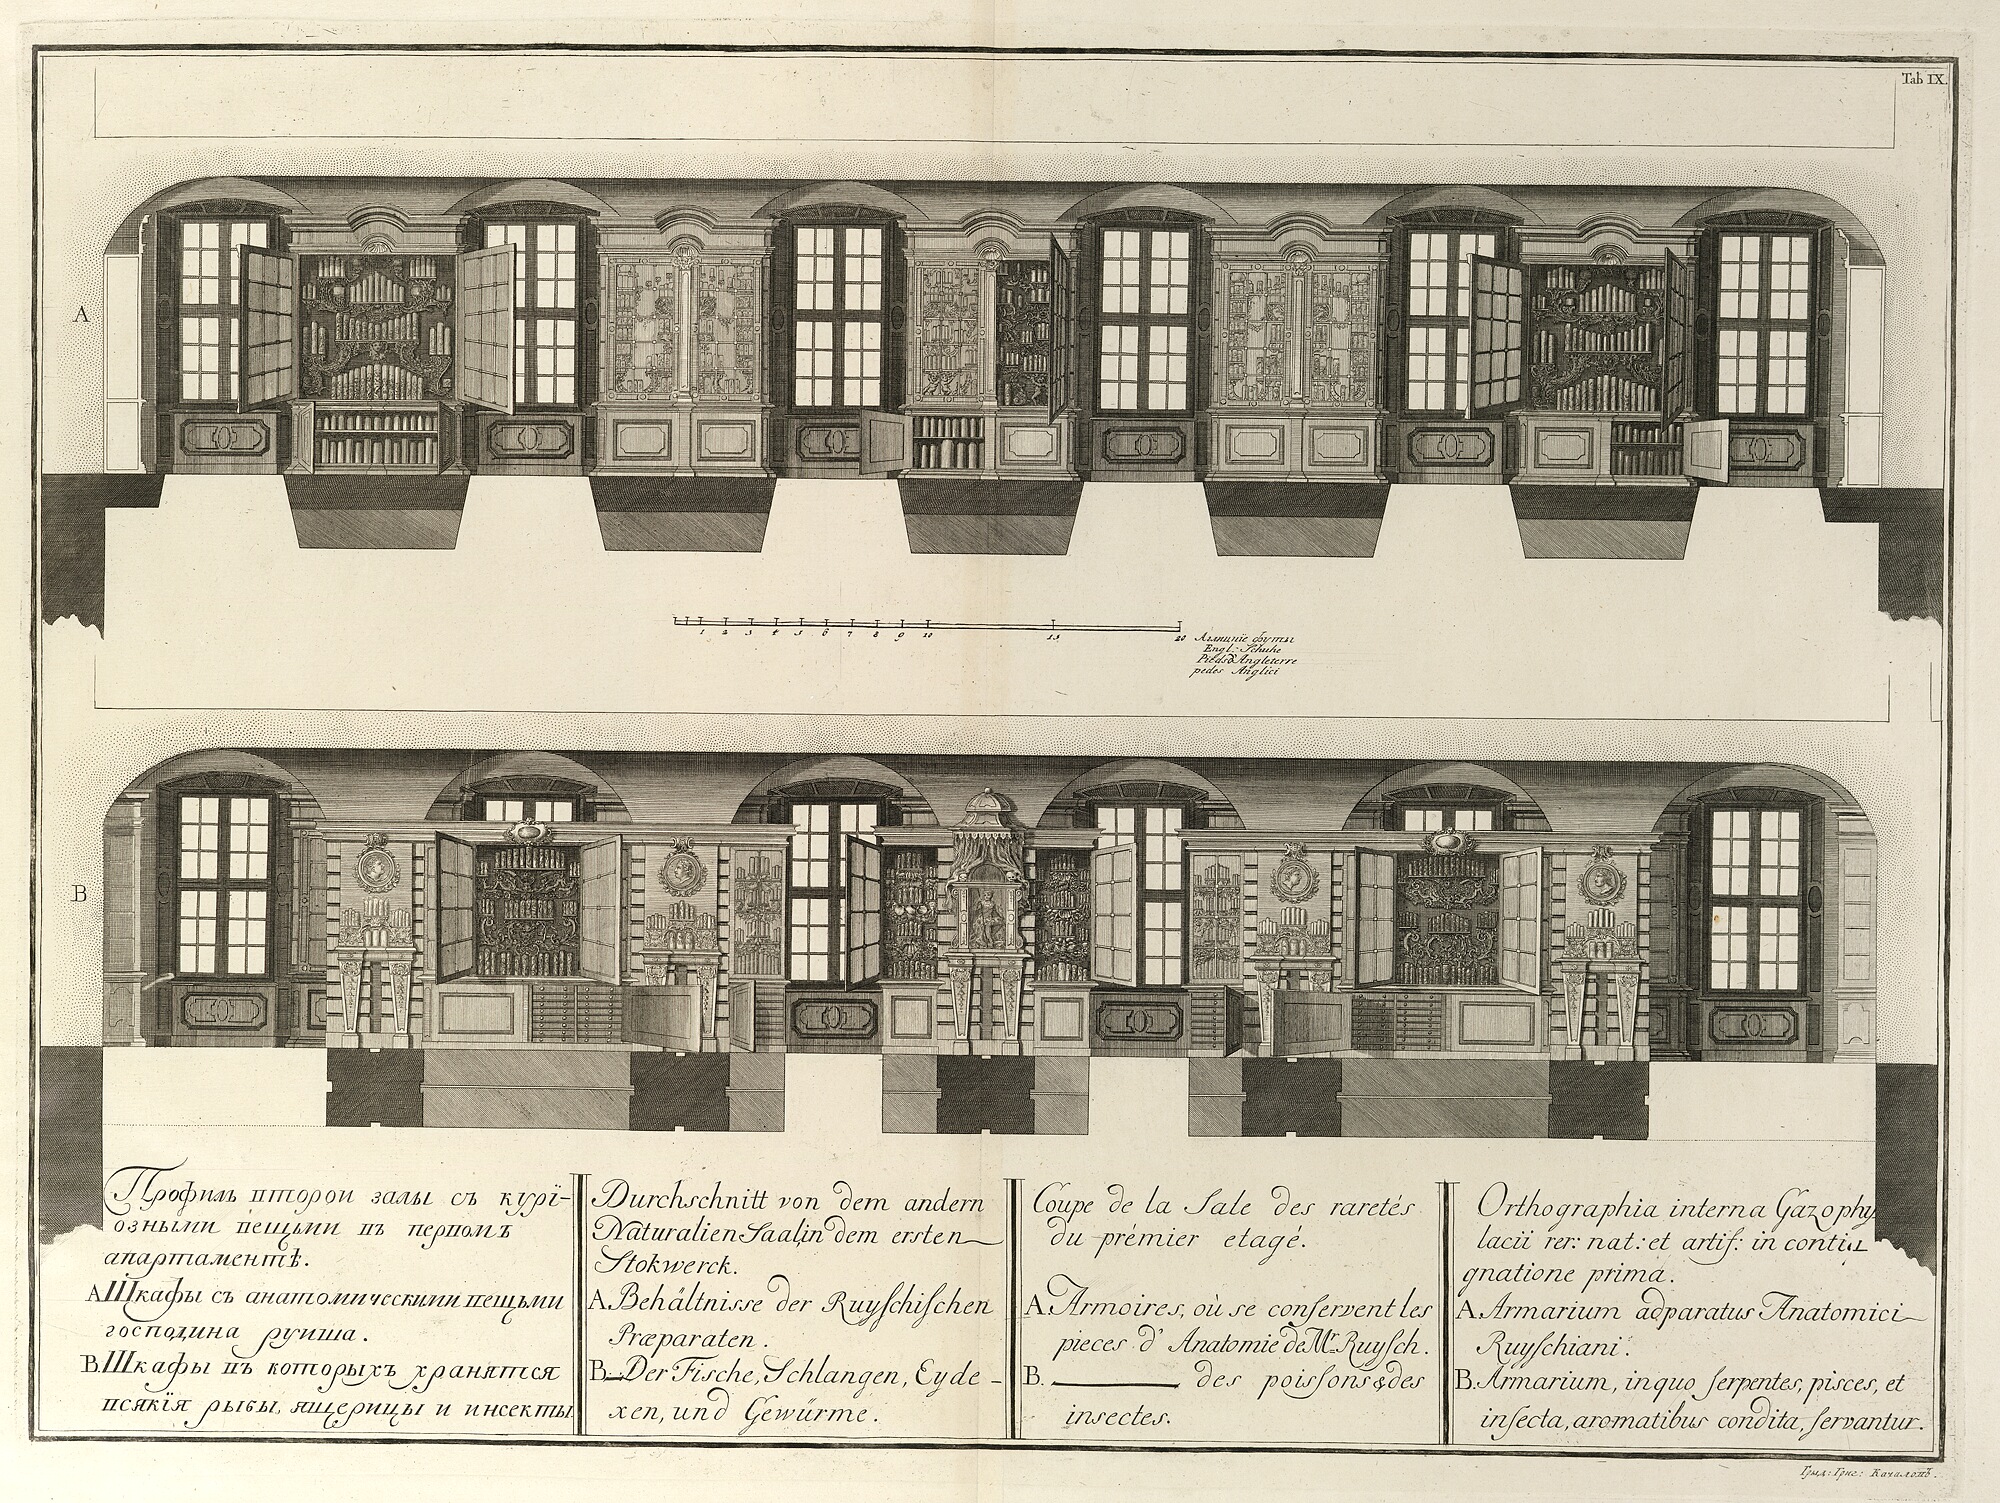 Tab IX.
A
1 2 3 4 5 6 7 8 9 10 15 20
Аглицкїе футы
Engl: Schuhe
Pieds d'Angleterre
pedes Anglici
B
Профиль второй залы съ курї-
озными вещьми въ первомъ
апартаментѣ.
A Шкафы съ анатомическими вещьми
господина руиша.
B. Шкафы въ которыхъ хранятся
всякїя рыбы, ящерицы и инсекты.
Durchschnitt von dem andern
Naturalien Saal in dem ersten
Stokwerck.
A. Behältnisse der Ruyschischen
Præparaten.
B. — Der Fische, Schlangen, Eyde-
xen, und Gewürme.
Coupe de la Sale des raretés
du prémier etagé.
A. Armoires, où se conservent les
pieces d'Anatomie de Mr. Ruysch.
B. — des poissons & des
insectes.
Orthographia interna Gazophy
lacii rer: nat: et artif: in conti
gnatione prima.
A. Armarium adparatus Anatomici
Ruyschiani.
B. Armarium, in quo serpentes, pisces, et
insecta, aromatibus condita, servantur.
Грыд: Григ: Качаловъ.